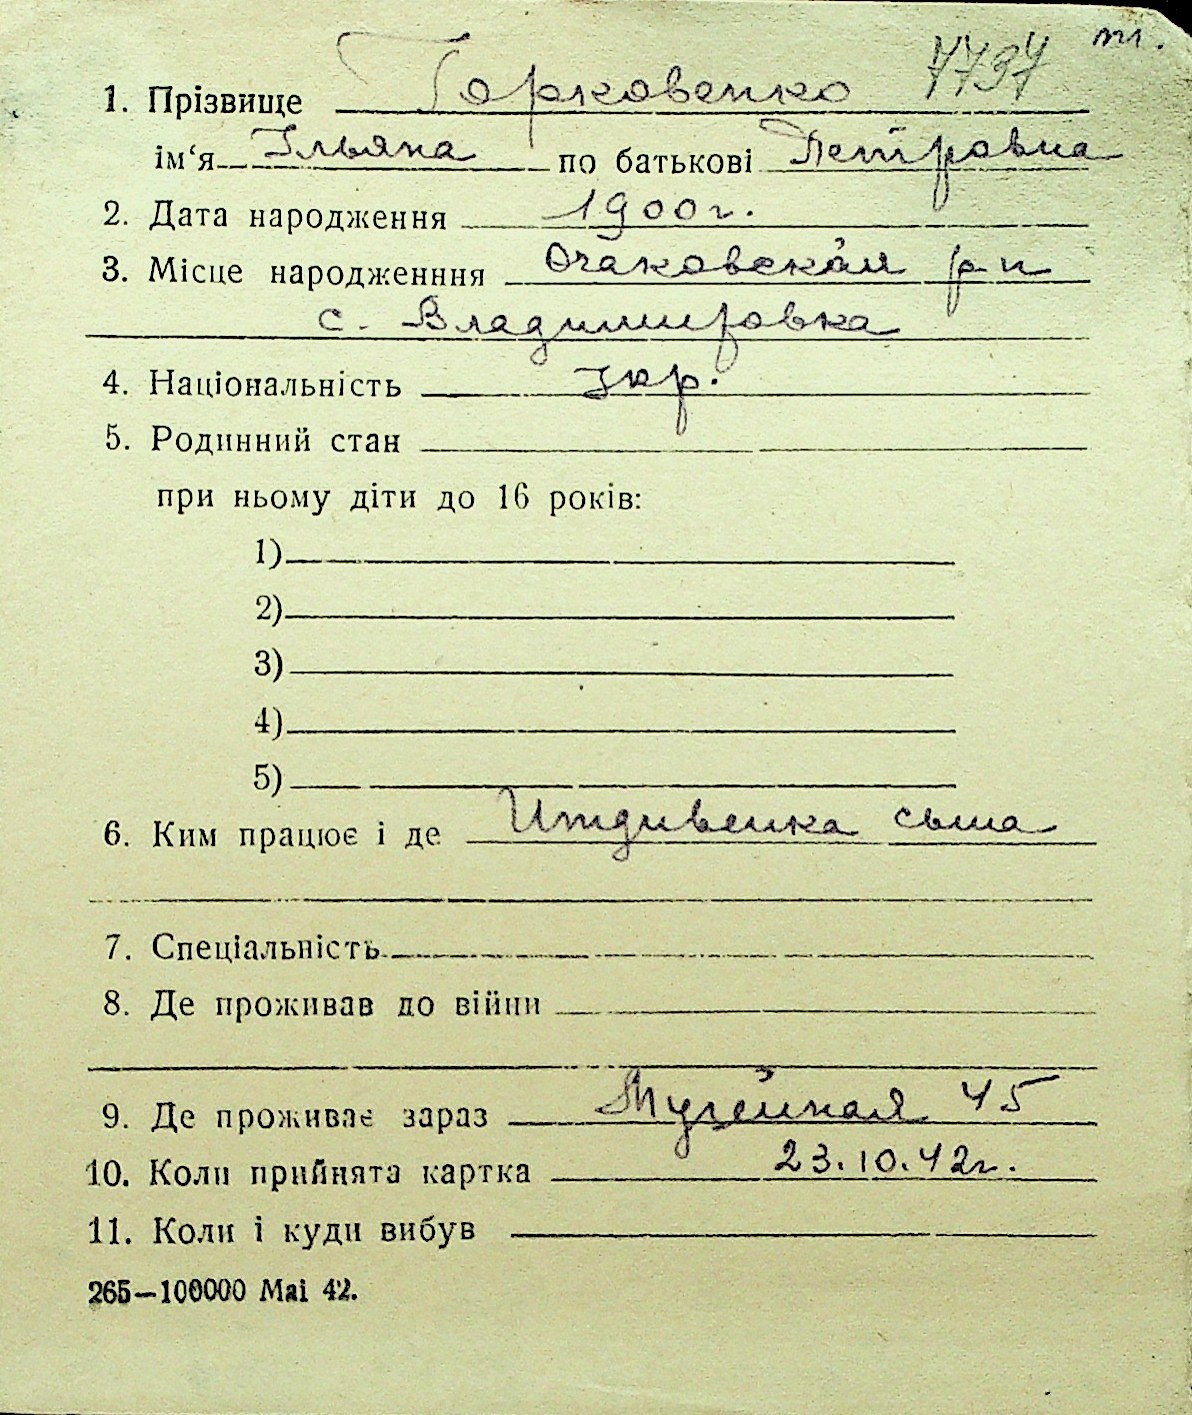 7797 м.
1. Прізвище Горковенко
ім‘я Ульяна по батькові Петровна
2. Дата народження 1900г.
3. Місце народженння Очаковский р-н
с. Владимировка
4. Національність Укр.
5. Родинний стан
при ньому діти до 16 років:
1)
2)
3)
4)
5)
6. Ким працює і де Иждивенка сына
7. Спеціальність
8. Де проживав до війни
9. Де проживає зараз Музейная 45
10. Коли прийнята картка 23.10.42г.
11. Коли і куди вибув
265—100000 Mai 42.